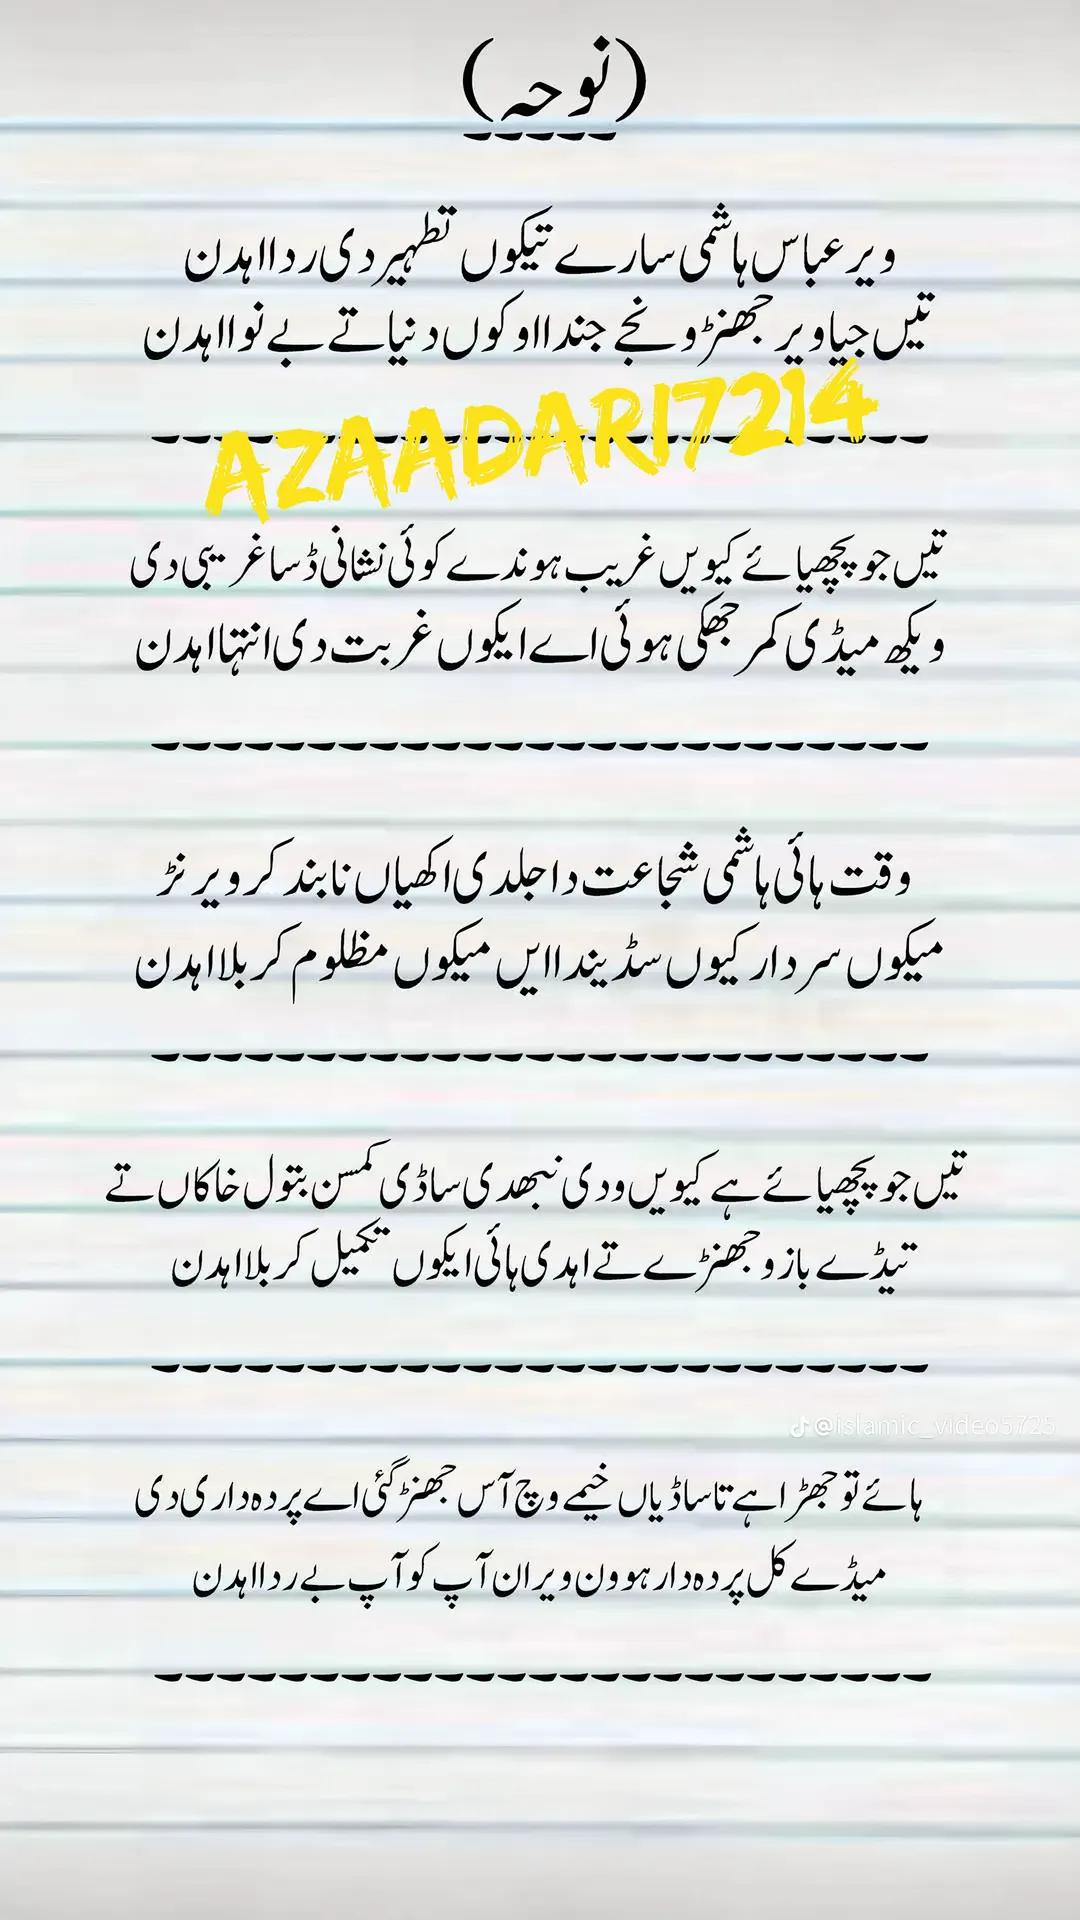 (نوحہ)
ویر عباس ہاشمی سارے تیکوں تطہیر دی ردا اہدن
تیں جیا ویر جھنڑ ونجے جندا اوکوں دنیا تے بے نوا اہدن
AZAADARI7214
تیں جو پچھیائے کیویں غریب ہوندے کوئی نشانی ڈسا غریبی دی
ویکھ میڈی کمر جھکی ہوئی اے ایکوں غربت دی انتہا اہدن
وقت ہائی ہاشمی شجاعت دا جلدی اکھیاں نا بند کر ویرنڑ
میکوں سردار کیوں سڈیندا ایں میکوں مظلوم کربلا اہدن
تیں جو پچھیائے ہے کیویں ودی نبھدی ساڈی کمسن بتول خاکاں تے
تیڈے بازو جھنڑے تے اہدی ہائی ایکوں تکمیل کربلا اہدن
@islamic_video5725
ہائے تو جھڑا ہے تا ساڈیاں خیمے وچ آس جھنڑ گئی اے پردہ داری دی
میڈے کل پردہ دار ہوون ویران آپ کو آپ بے ردا اہدن